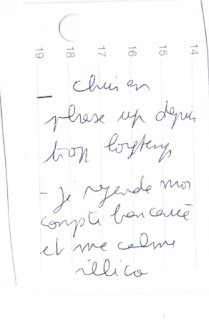 19 18 17 16 15 14
— chui en
phase up depuis
trop longtemps
- je regarde mon
compte bancaire
et me calme
illico